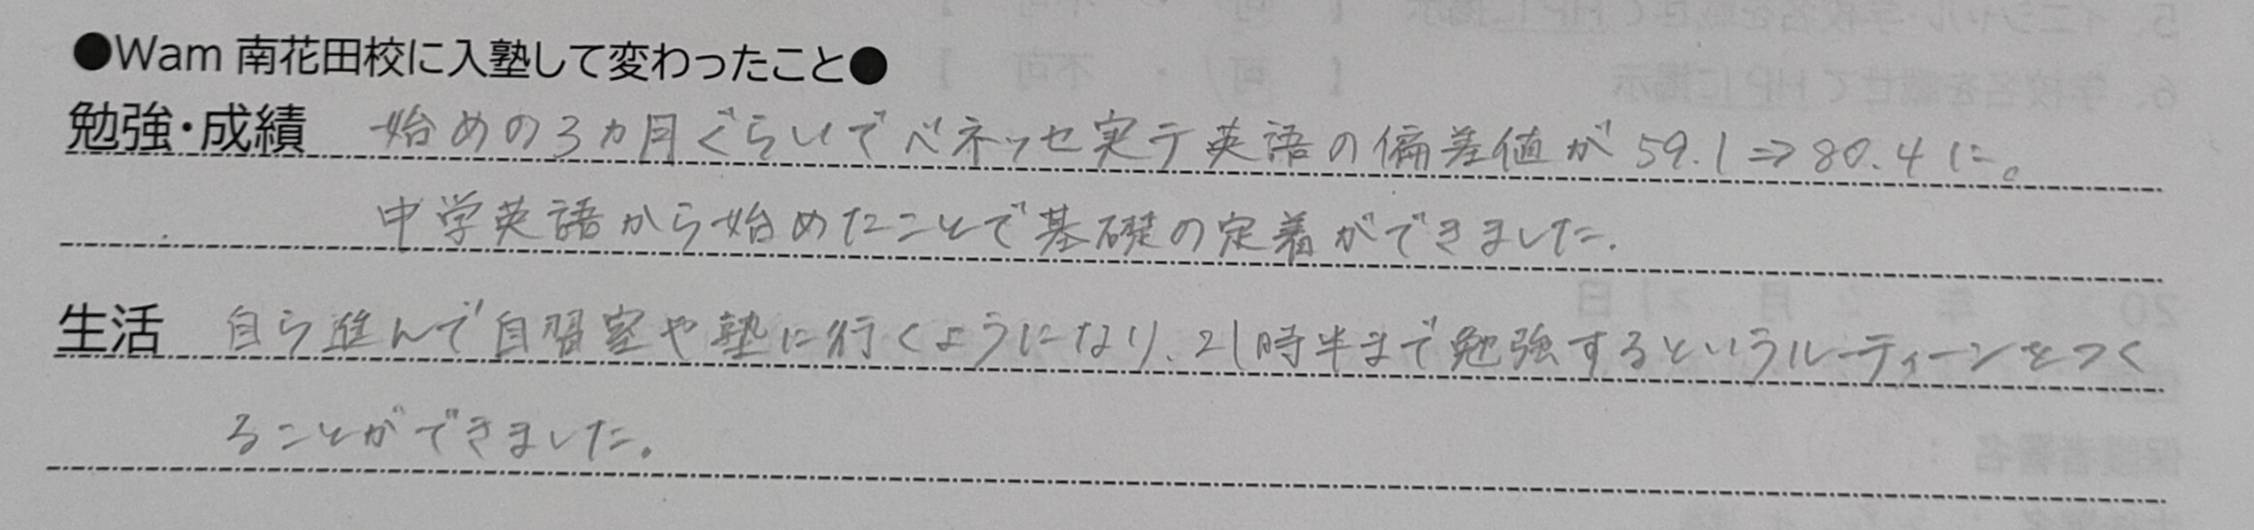 ●Wam 南花田校に入塾して変わったこと●
勉強・成績 始めの3ヵ月ぐらいでベネッセ実テ英語の偏差値が59.1⇒80.4に。
中学英語から始めたことで基礎の定着ができました.
生活 自ら進んで自習室や塾に行くようになり、21時半まで勉強するというルーティーンをつく
ることができました。